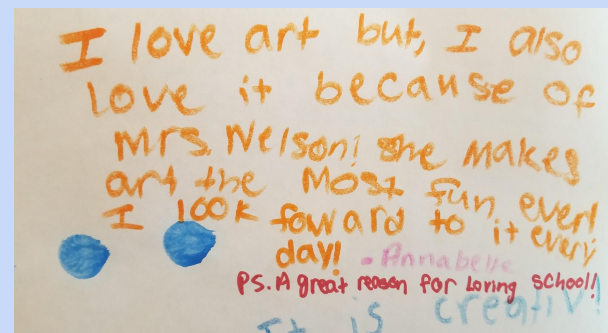 I love art but, I also
love it because of
Mrs. Nelson! she makes
art the most fun ever!
I look foward to it every
day! - Annabelle
PS. A great reason for Loving school!
It is creativ